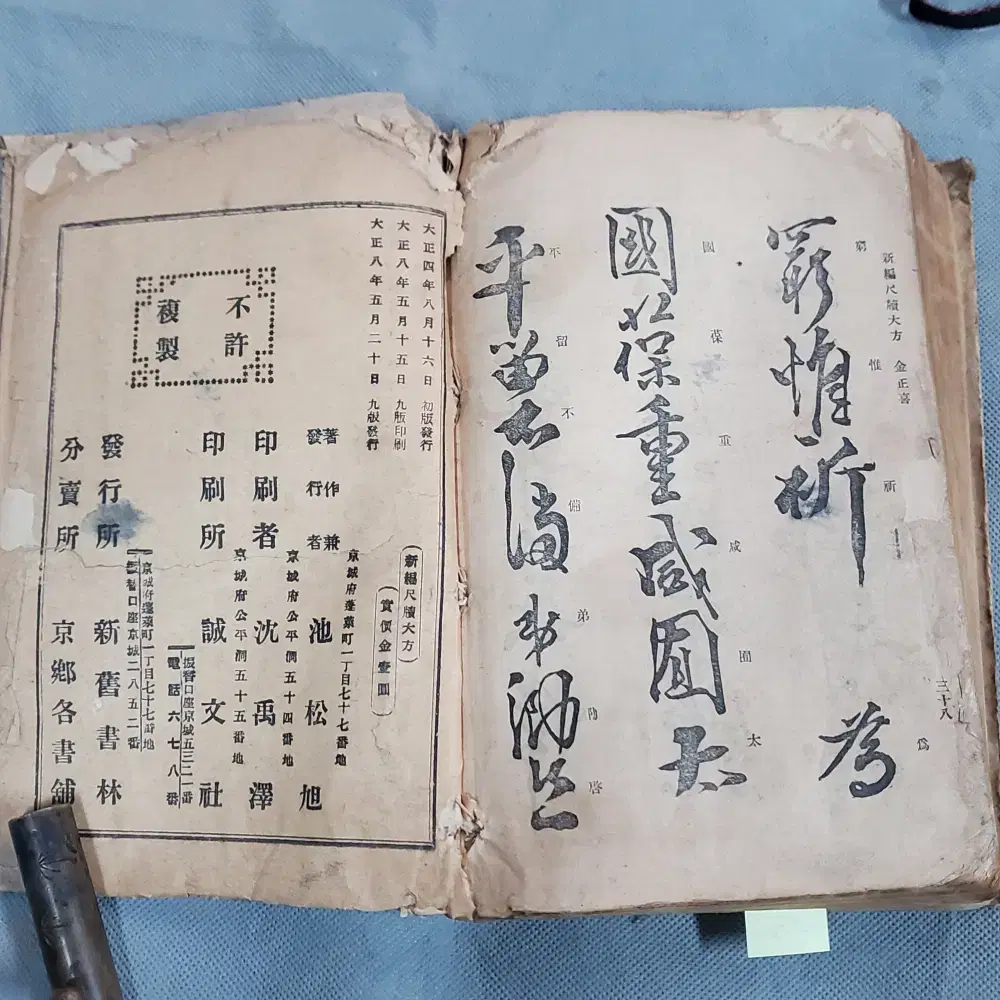 新編尺牘大方 金正喜 三十八
窮惟祈 爲
窮 惟 祈 爲
國葆重咸囿太
國 葆 重 咸 囿 太
平留不備弟泐啓
不 留 不 備 弟 泐 啓
大正四年八月十六日 初版發行
大正八年五月十五日 九版印刷
大正八年五月二十日 九版發行
不許
複製
新編尺牘大方
實價金壹圓
京城府蓬萊町一丁目七十七番地
著作兼發行者 池松旭
京城府公平洞五十四番地
印刷者 沈禹澤
京城府公平洞五十五番地
印刷所 誠文社
振替口座京城五三二一番
電話六七八番
京城府蓬萊町一丁目七十七番地
振替口座京城二八五二番
發行所 新舊書林
分賣所 京鄉各書舖